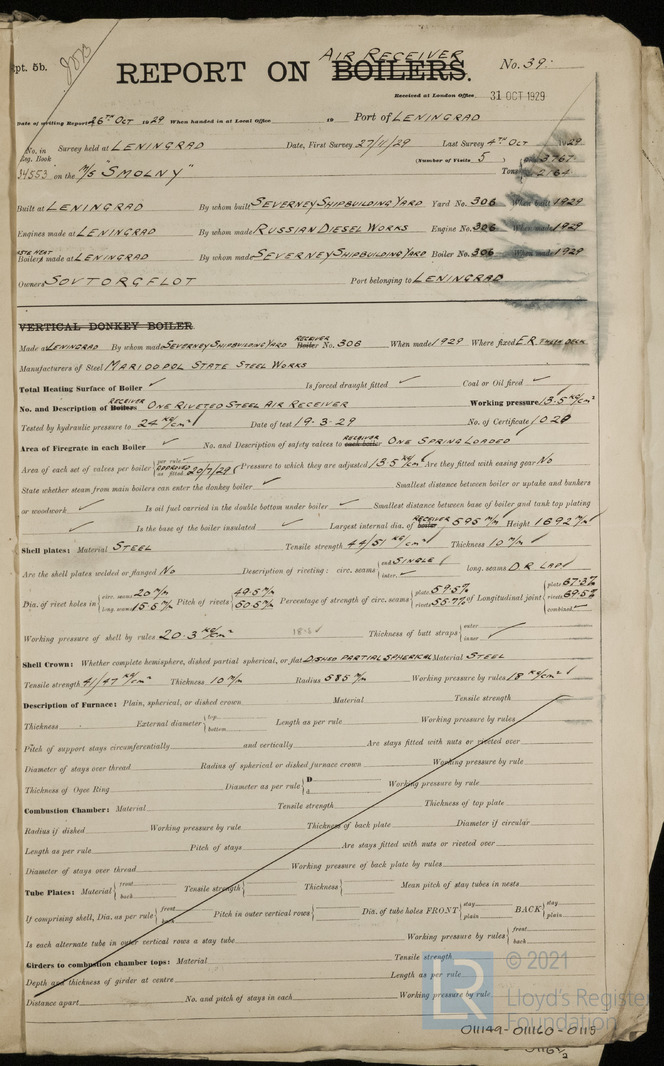 Rpt. 5b.
AIR RECEIVER
REPORT ON BOILERS.
No. 39.
Received at London Office 31 OCT 1929
Date of writing Report 26TH OCT 1929 When handed in at Local Office 19 Port of LENINGRAD
No. in Reg. Book Survey held at LENINGRAD Date, First Survey 27/11/29 Last Survey 4TH OCT 1929
(Number of Visits 5)
34553 on the M/S "SMOLNY" Tons 3767 2164
Built at LENINGRAD By whom built SEVERNEY SHIPBUILDING YARD Yard No. 306 When built 1929
Engines made at LENINGRAD By whom made RUSSIAN DIESEL WORKS Engine No. 306 When made 1929
WASTE HEAT
Boilers made at LENINGRAD By whom made SEVERNEY SHIPBUILDING YARD Boiler No. 306 When made 1929
Owners SOVTORGFLOT Port belonging to LENINGRAD
VERTICAL DONKEY BOILER
Made at LENINGRAD By whom made SEVERNEY SHIPBUILDING YARD RECEIVER Boiler No. 306 When made 1929 Where fixed E.R. TWEEN DECK
Manufacturers of Steel MARIOOPOL STATE STEEL WORKS
Total Heating Surface of Boiler ✓ Is forced draught fitted ✓ Coal or Oil fired ✓
No. and Description of RECEIVER Boilers ONE RIVETED STEEL AIR RECEIVER Working pressure 13.5 KG/cm²
Tested by hydraulic pressure to 24 KG/cm² Date of test 19-3-29 No. of Certificate 1020
Area of Firegrate in each Boiler ✓ No. and Description of safety valves to RECEIVER each boiler ONE SPRING LOADED
Area of each set of valves per boiler {per rule APPROVED as fitted 20/7/29 Pressure to which they are adjusted 13.5 KG/cm² Are they fitted with easing gear NO
State whether steam from main boilers can enter the donkey boiler ✓ Smallest distance between boiler or uptake and bunkers
or woodwork ✓ Is oil fuel carried in the double bottom under boiler ✓ Smallest distance between base of boiler and tank top plating
✓ Is the base of the boiler insulated ✓ Largest internal dia. of RECEIVER boiler 595 M/m Height 1692 M/m
Shell plates: Material STEEL Tensile strength 44/51 KG/cm² Thickness 10 M/m
Are the shell plates welded or flanged NO Description of riveting: circ. seams {end SINGLE inter. ✓ long. seams D.R. LAP
Dia. of rivet holes in {circ. seams 20 M/m long. seams 15.5 M/m Pitch of rivets {49.5 M/m 50.5 M/m Percentage of strength of circ. seams {plate 59.5% rivets 55.7% of Longitudinal joint {plate 67.3% rivets 69.5% combined ✓
Working pressure of shell by rules 20.3 KG/cm² Thickness of butt straps {outer inner ✓
Shell Crown: Whether complete hemisphere, dished partial spherical, or flat DISHED PARTIAL SPHERICAL Material STEEL
Tensile strength 41/47 KG/cm² Thickness 10 M/m Radius 585 M/m Working pressure by rules 18 KG/cm²
Description of Furnace: Plain, spherical, or dished crown Material Tensile strength
Thickness External diameter {top bottom Length as per rule Working pressure by rules
Pitch of support stays circumferentially and vertically Are stays fitted with nuts or riveted over
Diameter of stays over thread Radius of spherical or dished furnace crown Working pressure by rule
Thickness of Ogee Ring Diameter as per rule {D d Working pressure by rule
Combustion Chamber: Material Tensile strength Thickness of top plate
Radius if dished Working pressure by rule Thickness of back plate Diameter if circular
Length as per rule Pitch of stays Are stays fitted with nuts or riveted over
Diameter of stays over thread Working pressure of back plate by rules
Tube Plates: Material {front back Tensile strength { Thickness { Mean pitch of stay tubes in nests
If comprising shell, Dia. as per rule {front back Pitch in outer vertical rows { Dia. of tube holes FRONT {stay plain BACK {stay plain
Is each alternate tube in outer vertical rows a stay tube Working pressure by rules {front back
Girders to combustion chamber tops: Material Tensile strength
Depth and thickness of girder at centre Length as per rule
Distance apart No. and pitch of stays in each Working pressure by rule
LR © 2021
Lloyd's Register
Foundation
011149-011160-0115